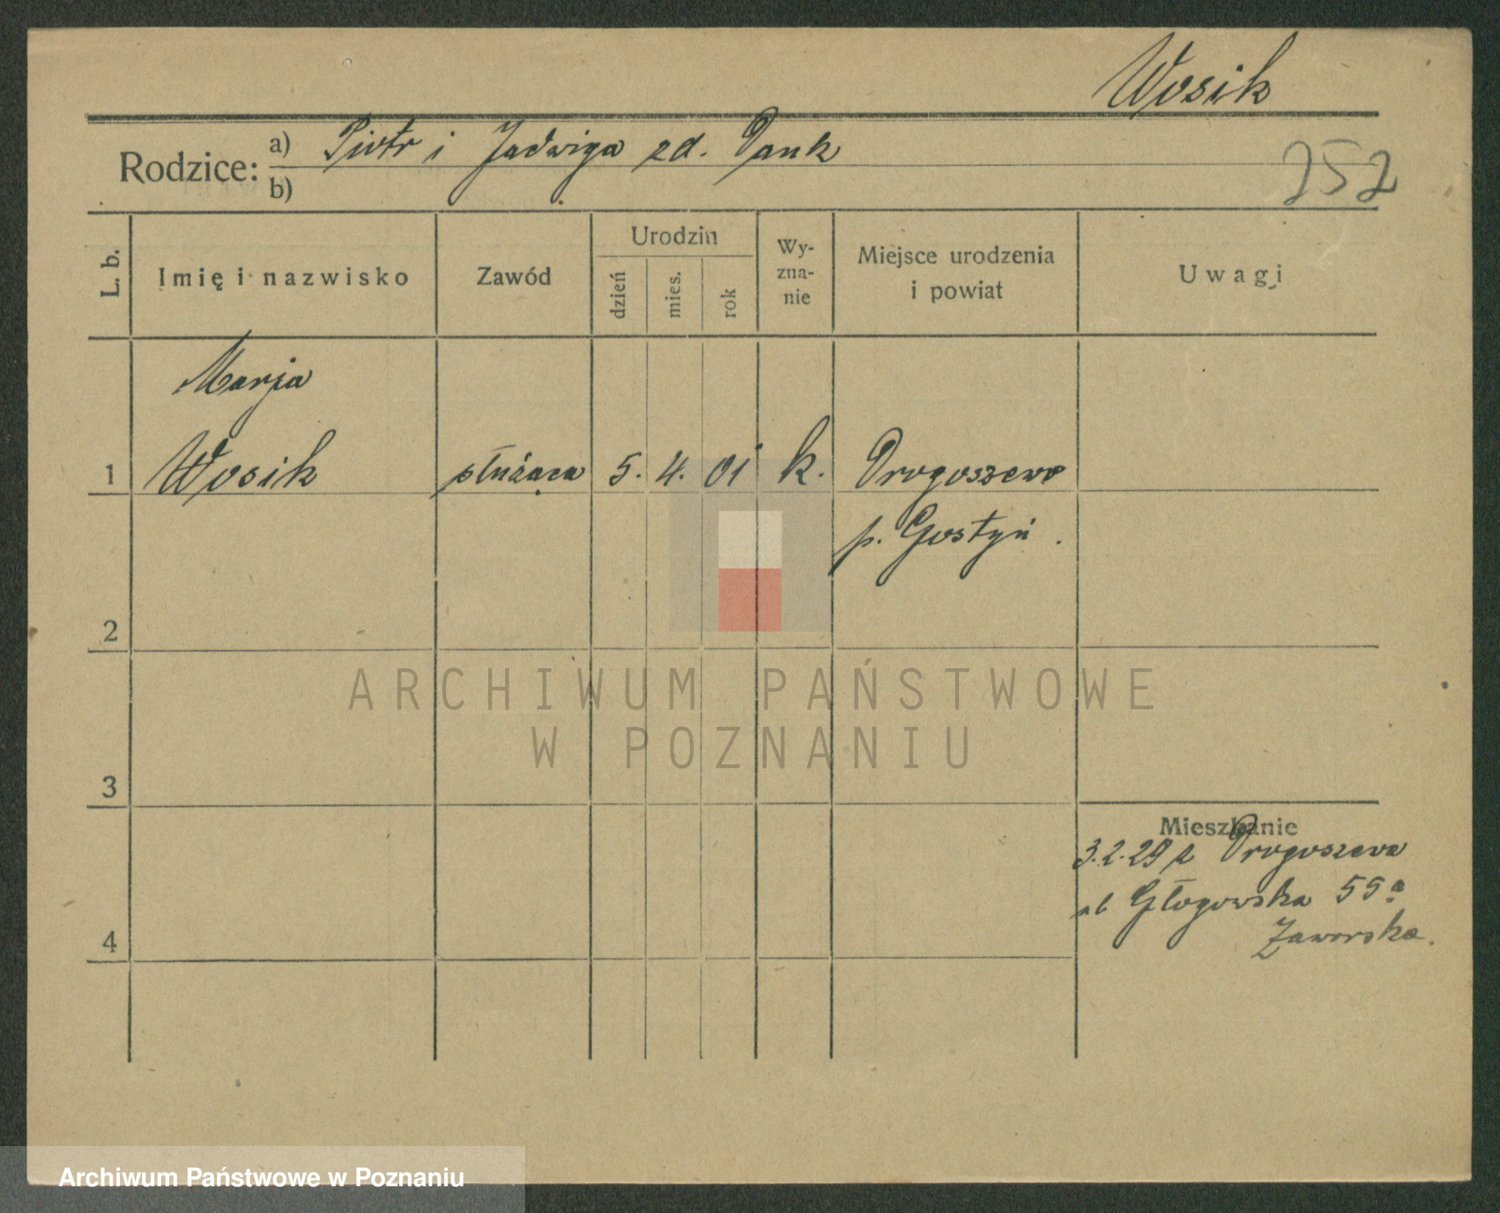 Wosik
Rodzice: a) Piotr i Jadwiga zd. Pank
b)
252
L. b.
Imię i nazwisko
Zawód
Urodzin
dzień
mies.
rok
Wy-
zna-
nie
Miejsce urodzenia
i powiat
Uwagi
Marja
1 Wosik służąca 5. 4. 01 k. Drogoszewo
p. Gostyń.
2
3
4
Mieszkanie
3.2.29 z Drogoszewa
ul Głogowska 55a
Jaworska.
ARCHIWUM PAŃSTWOWE
W POZNANIU
Archiwum Państwowe w Poznaniu